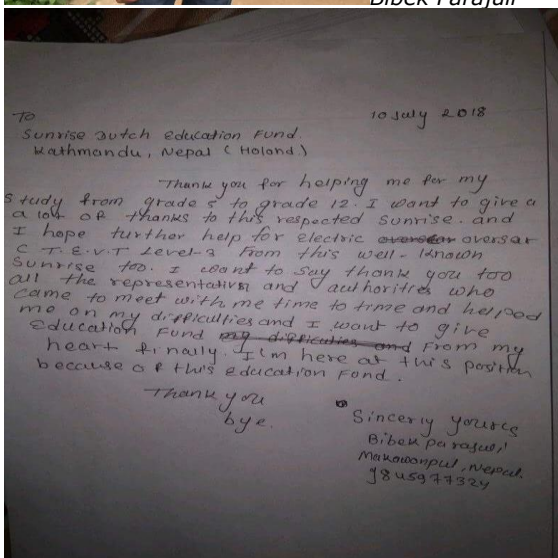 Bibek Parajuli
10 July 2018
To
Sunrise Dutch Education Fund.
Kathmandu, Nepal (Holand)
Thank you for helping me for my
study from grade 5 to grade 12. I want to give a
a lot of thanks to this respected Sunrise. and
I hope further help for electric oversar
C T.E.V.T Level-3 From this well-known
Sunrise too. I want to say thank you too
all the representativs and authorities who
came to meet with me time to time and helped
me on my difficulties and I want to give
Education Fund my difficulties and From my
heart finally. I'm here at this position
because of this education Fund.
Thank you
bye.
Sincerly yours
Bibek parajuli
Makawanpul, Nepal.